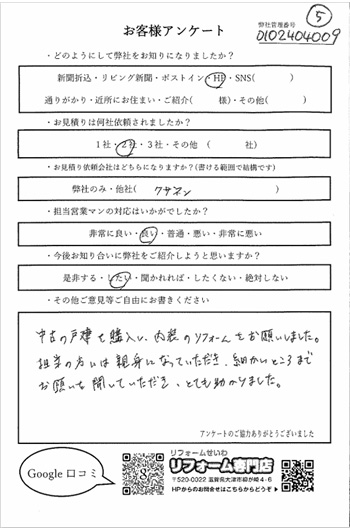 ⑤
お客様アンケート
弊社管理番号
0102404009
・どのようにして弊社をお知りになりましたか？
新聞折込・リビング新聞・ポストイン・HP・SNS(　　　)
通りがかり・近所にお住まい・ご紹介(　　　様)・その他(　　　)
・お見積りは何社依頼されましたか？
1社・2社・3社・その他　(　　　社)
・お見積り依頼会社はどちらになりますか？(書ける範囲で結構です)
弊社のみ・他社(　クサネン　)
・担当営業マンの対応はいかがでしたか？
非常に良い・良い・普通・悪い・非常に悪い
・今後お知り合いに弊社をご紹介しようと思いますか？
是非する・したい・聞かれれば・したくない・絶対しない
・その他ご意見等ご自由にお書きください
中古の戸建を購入し、内装のリフォームをお願いしました。
担当の方いは親身になっていただき、細かいところまで
お願いを聞していただき、とても助かりました。
アンケートのご協力ありがとうございました
Google 口コミ
リフォームせいわ
リフォーム専門店
〒520-0022 滋賀県大津市柳が崎4-6
HPからのお問合せはこちらからどうぞ▶